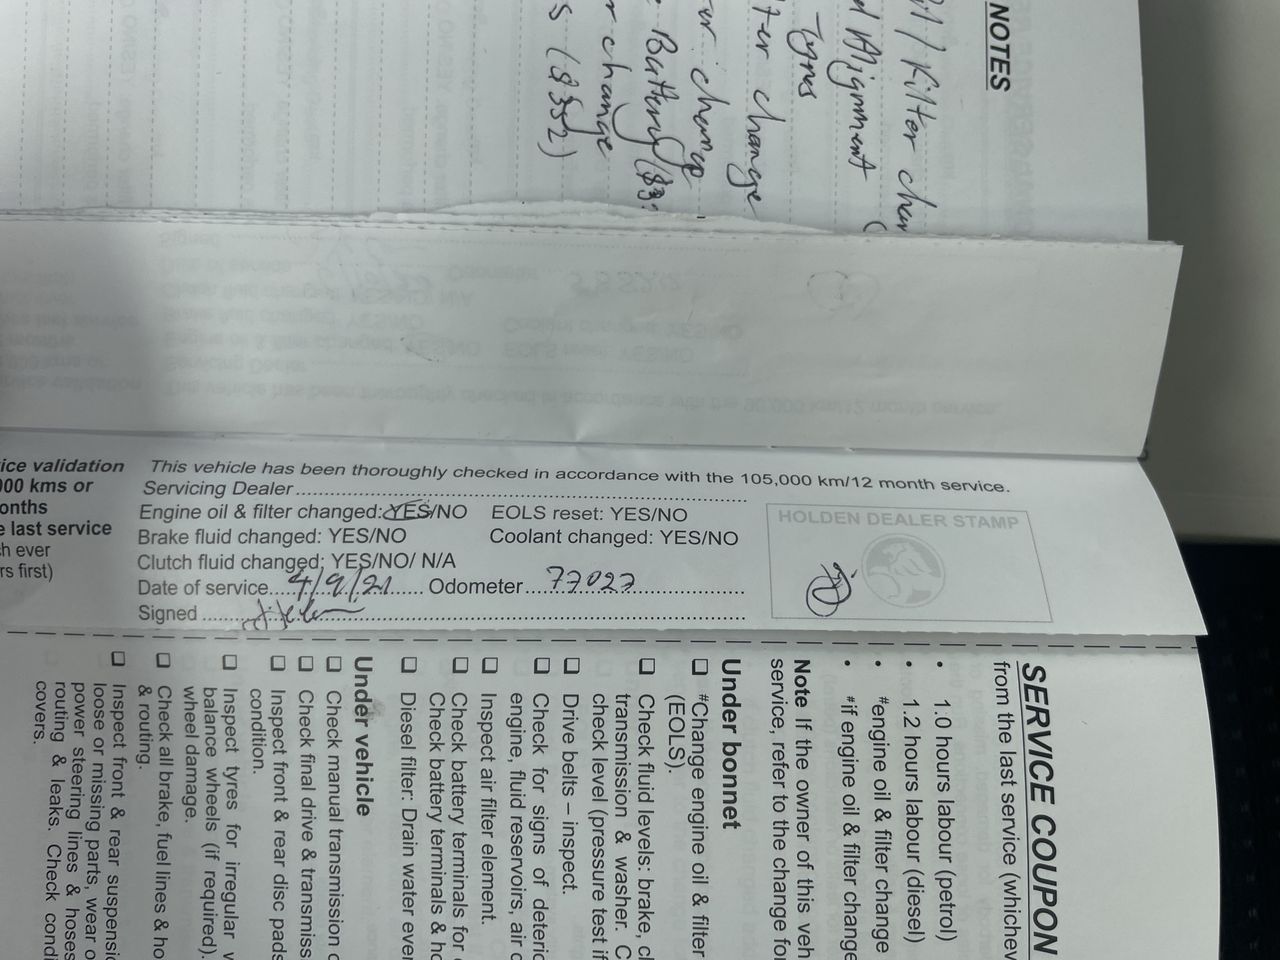 NOTES
Filter
d Alignment
Tyres
ter change
er change
Battery ($3
r change
s ($352)
ice validation
000 kms or
onths
e last service
h ever
rs first)
This vehicle has been thoroughly checked in accordance with the 105,000 km/12 month service.
Servicing Dealer
Engine oil & filter changed: YES/NO EOLS reset: YES/NO
Brake fluid changed: YES/NO Coolant changed: YES/NO
Clutch fluid changed: YES/NO/ N/A
Date of service 4/9/21 Odometer 77027
Signed
HOLDEN DEALER STAMP
SERVICE COUPON
from the last service (whichev
• 1.0 hours labour (petrol)
• 1.2 hours labour (diesel)
• #engine oil & filter change
• #if engine oil & filter change
Note If the owner of this veh
service, refer to the change for
Under bonnet
❏ #Change engine oil & filter
(EOLS).
❏ Check fluid levels: brake, cl
transmission & washer. C
check level (pressure test if
❏ Drive belts – inspect.
❏ Check for signs of deterio
engine, fluid reservoirs, air c
❏ Inspect air filter element.
❏ Check battery terminals for
Check battery terminals & ho
❏ Diesel filter: Drain water ever
Under vehicle
❏ Check manual transmission
❏ Check final drive & transmiss
❏ Inspect front & rear disc pads
condition.
❏ Inspect tyres for irregular w
balance wheels (if required).
wheel damage.
❏ Check all brake, fuel lines & ho
& routing.
❏ Inspect front & rear suspensic
loose or missing parts, wear o
power steering lines & hoses
routing & leaks. Check condi
covers.